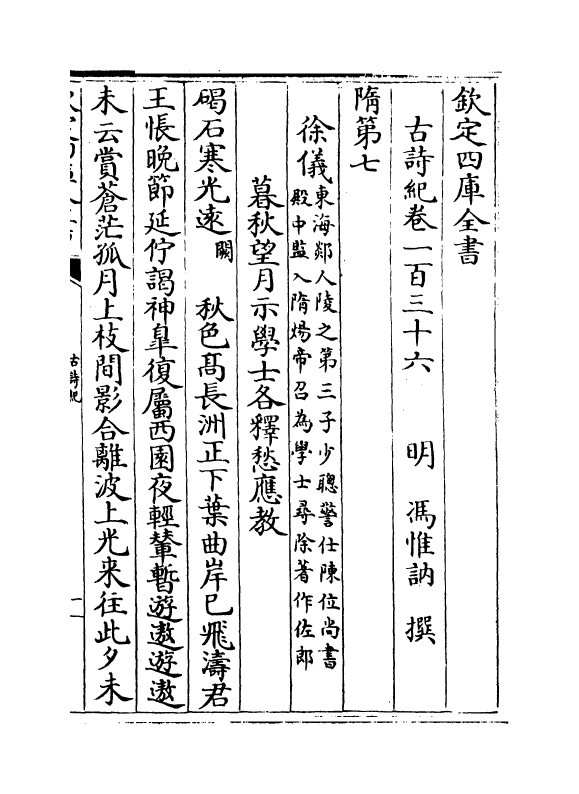 欽定四庫全書
古詩紀卷一百三十六　　明　馮惟訥　撰
隋第七
徐儀東海郯人陵之第三子少聰警仕陳位尚書
殿中監入隋煬帝召為學士尋除著作佐郎
暮秋望月示學士各釋愁應教
碣石寒光遠闕　秋色髙長洲正下葉曲岸已飛濤君
王悵晩節延佇謁神臯復屬西園夜輕輦暫遊遨遊遨
未云賞蒼茫孤月上枝間影合離波上光来往此夕未
古詩紀
一